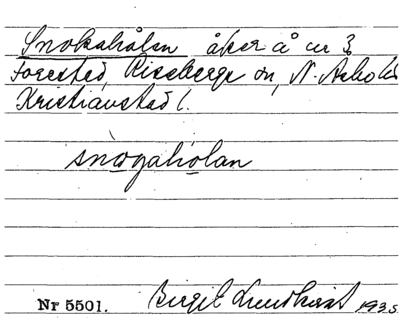 Snokahålan åker å nr 3
Forestad, Riseberga sn, N. Åsbo hd
Kristianstad l.
snogaholan
Nr 5501. Birgit Lundkvist 1935